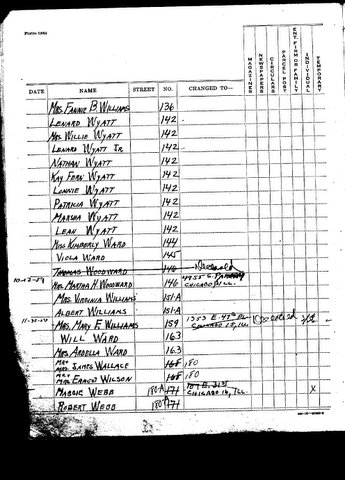 Form 1564
DATE NAME STREET NO. CHANGED TO— MAGAZINES NEWSPAPERS CIRCULARS PARCEL POST ENT. FIRM OR FAMILY INDIVIDUAL TEMPORARY
Mrs. Fannie B. Williams 136
Lenard Wyatt 142
Mrs. Willie Wyatt 142
Lenard Wyatt Jr. 142
Nathan Wyatt 142
Kay Fern Wyatt 142
Lonnie Wyatt 142
Patricia Wyatt 142
Marsha Wyatt 142
Leah Wyatt 142
Miss Kimberly Ward 144
Viola Ward 145
Thomas Woodward 146 Deceased
10-12-59 Mrs. Martha H. Woodward 146 4955 S. Chicago Ill.
Mrs. Virginia Williams 151-A
Albert Williams 151-A
Mrs. Mary E. Williams 159 1353 E. 47th Pl.
Will Ward 163
Mrs. Ardella Ward 163
Mrs. James Wallace 168 180
Mrs. Wilson 168 180
Maggie Webb 180-A 171 Chicago 16, Ill. X
Robert Webb 180-A 171